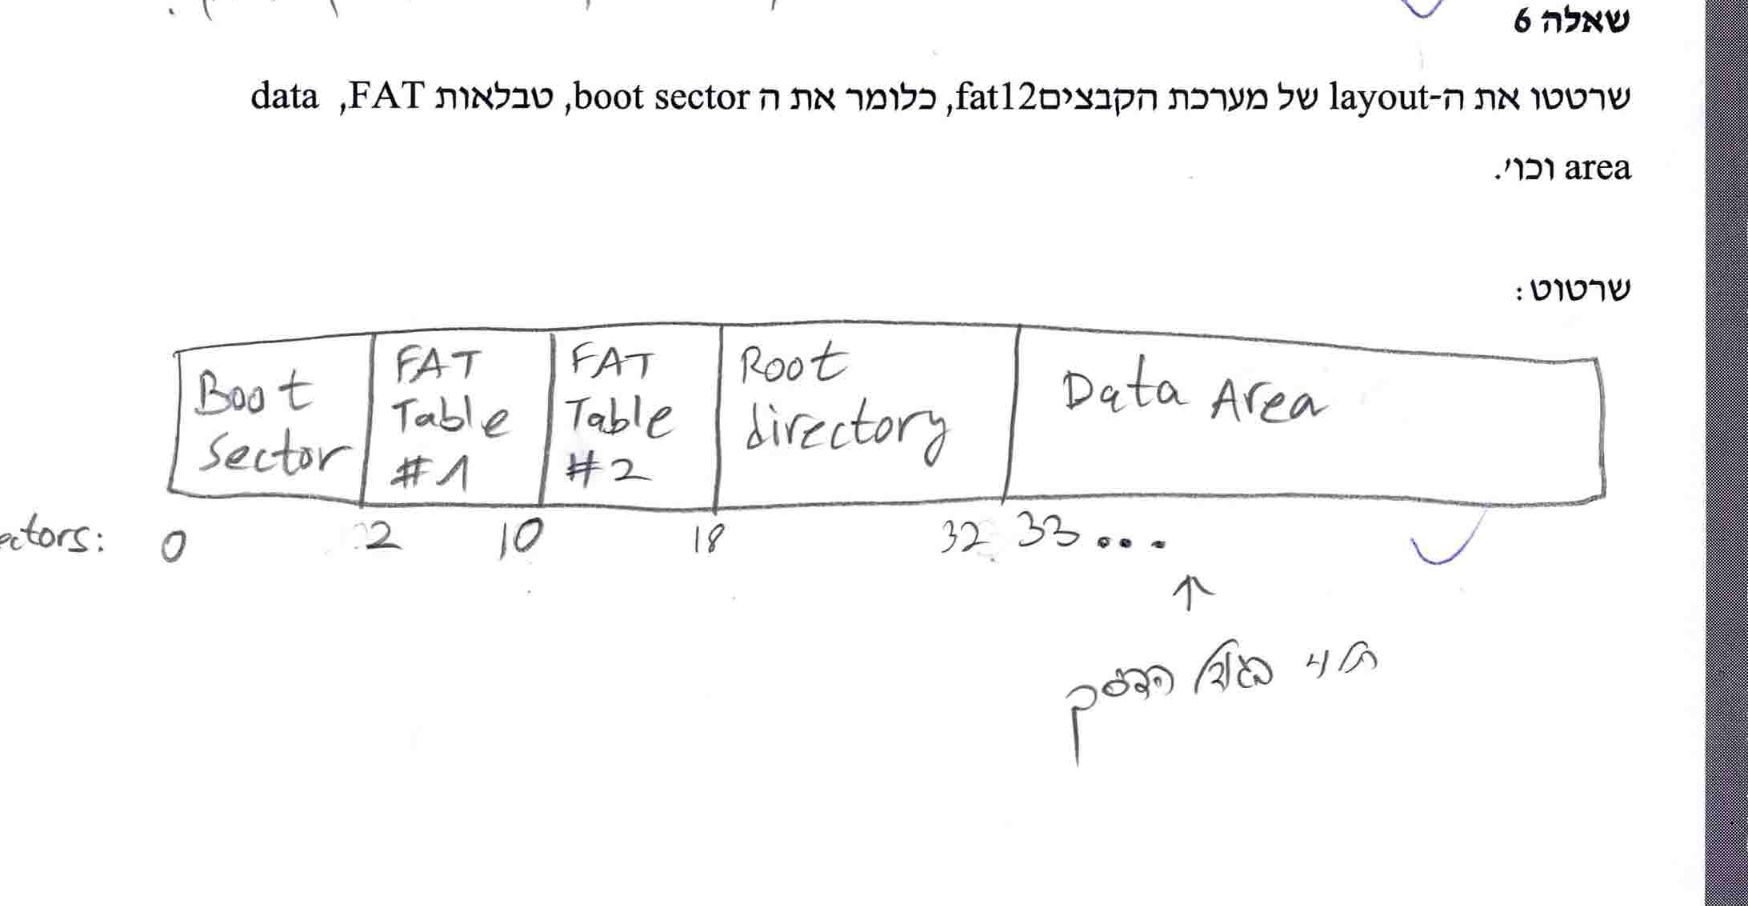 שאלה 6
שרטטו את ה-layout של מערכת הקבציםfat12, כלומר את ה boot sector, טבלאות FAT, data
area וכו'.
שרטוט:
Boot sector
FAT Table #1
FAT Table #2
Root directory
Data Area
ectors: 0 2 10 18 32 33...
תלוי בגודל הדסק